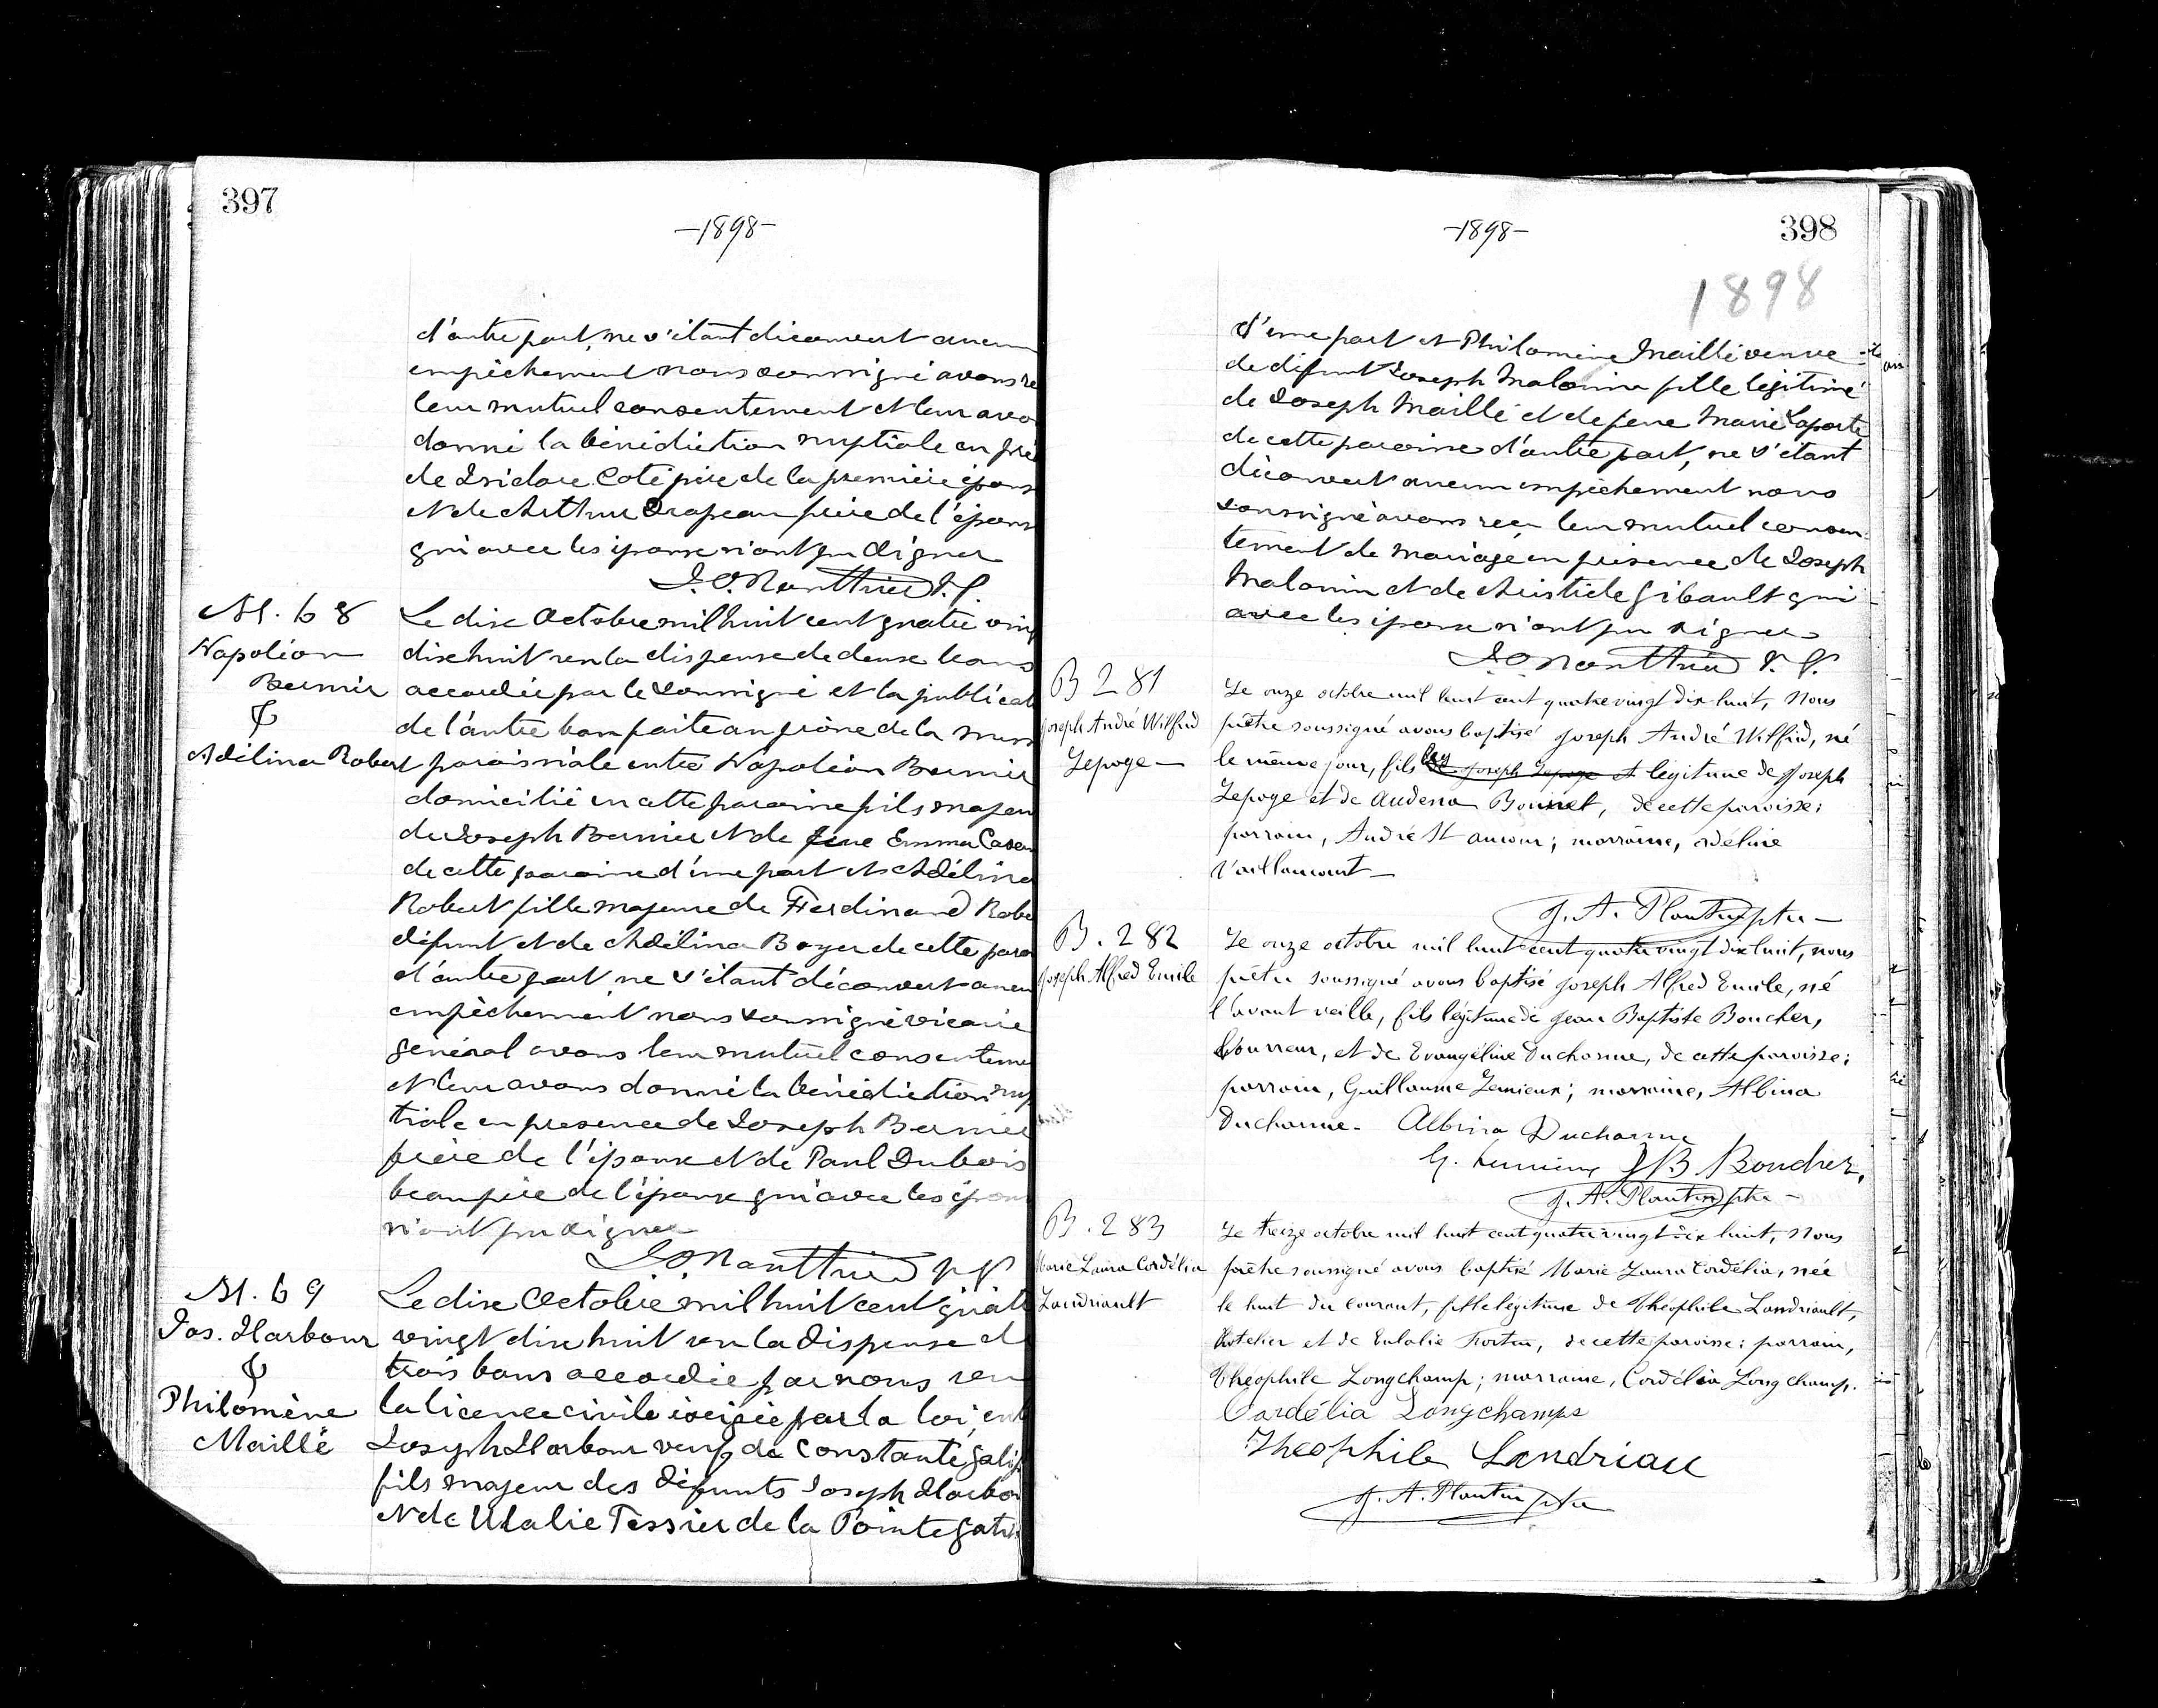 397
-1898-
d'autre part, ne s'étant découvert aucun
empêchement nous soussigné avons re
leur mutuel consentement et leur avo
donné la bénédiction nuptiale en pré
de Isidore Coté père de la première épous
et de Arthur Drapeau frère de l'épous
qui avec les époux n'ont pu signer
M. 68
Napoléon
Bernier
&
Adélina Robert
Le dix Octobre mil huit cent quatre ving
dix huit vu la dispense de deux bans
accordée par le soussigné et la publicat
de l'autre ban faite au prône de la mess
paroissiale entre Napoléon Bernier
domicilié en cette paroisse fils majeu
de Joseph Bernier et de feue Emma
de cette paroisse d'une part et Adélina
Robert fille majeure de Ferdinand Robe
défunt et de Adélina Boyer de cette paro
d'autre part, ne s'étant découvert aucu
empêchement nous soussigné vicaire
général avons leur mutuel consenteme
et leur avons donné la bénédiction nup
tiale en presence de Joseph Bernier
frère de l'époux et de Paul Dubois
beaupère de l'épouse qui avec les épou
n'ont pu signer
M. 69
Jos. Harbour
&
Philomène
Maillé
Le dix Octobre mil huit cent quatr
vingt dix huit vu la dispense d
trois bans accordée par nous vu
la licence civile exigée par la loi, ent
Joseph Harbour veuf de Constante
fils majeur des défunts Joseph Harbou
et de Ulalie Tessier de la Pointe Gati
-1898-
398
1898
d'une part et Philomène Maillé veuve
de défunt Joseph Malouin fille légitime
de Joseph Maillé et de feue Marie Laporte
de cette paroisse d'autre part, ne s'étant
découvert aucun empêchement nous
soussigné avons reçu leur mutuel consen-
tement de mariage en présence de Joseph
Malouin et de Aristide Gibault qui
avec les époux n'ont pu signer
B 281
Joseph André Wilfrid
Lepage -
Le onze octobre mil huit cent quatre vingt dix huit, Nous
prêtre soussigné avons baptisé Joseph André Wilfrid, né
le même jour, fils légitime de Joseph
Lepage et de Audena Bonnet, de cette paroisse;
parrain, André St amour; marraine, Adeline
Vaillancourt -
J. A. Plantin ptre -
B. 282
Joseph Alfred Emile
Le onze octobre mil huit cent quatre vingt dix huit, nous
prêtre soussigné avons baptisé Joseph Alfred Emile, né
l'avant veille, fils légitime de Jean Baptiste Boucher,
et de Evangéline Ducharme, de cette paroisse;
parrain, Guillaume Lemieux; marraine, Albina
Ducharme. Albina Ducharme
G. Lemieux J B Boucher,
J. A. Plantin ptre -
B. 283
Marie Laura Cordélia
Landriault
Le treize octobre mil huit cent quatre vingt dix huit, Nous
prêtre soussigné avons baptisé Marie Laura Cordélia, née
le huit du courant, fille légitime de Théophile Landriault,
hotelier et de Eulalie Fortin, de cette paroisse; parrain,
Théophile Longchamp; marraine, Cordélia Longchamp.
Cordélia Longchamps
Theophile Landriau
J. A. Plantin ptre